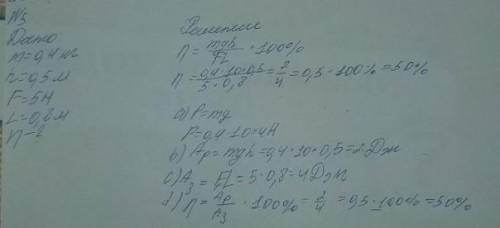 №5
Дано:
m=0,4 кг
h=0,5 м
F=5Н
L=0,8 м
η=?
Решение
η = mgh/FL · 100%
η = 0,4·10·0,5/5·0,8 = 2/4 = 0,5 · 100% = 50%
a) P=mg
P=0,4·10=4Н
b) Aₚ=mgh=0,4·10·0,5=2 Дж
c) A₃ = FL = 5·0,8=4Дж
d) η = Aₚ/A₃ · 100% = 2/4 = 0,5 · 100% = 50%